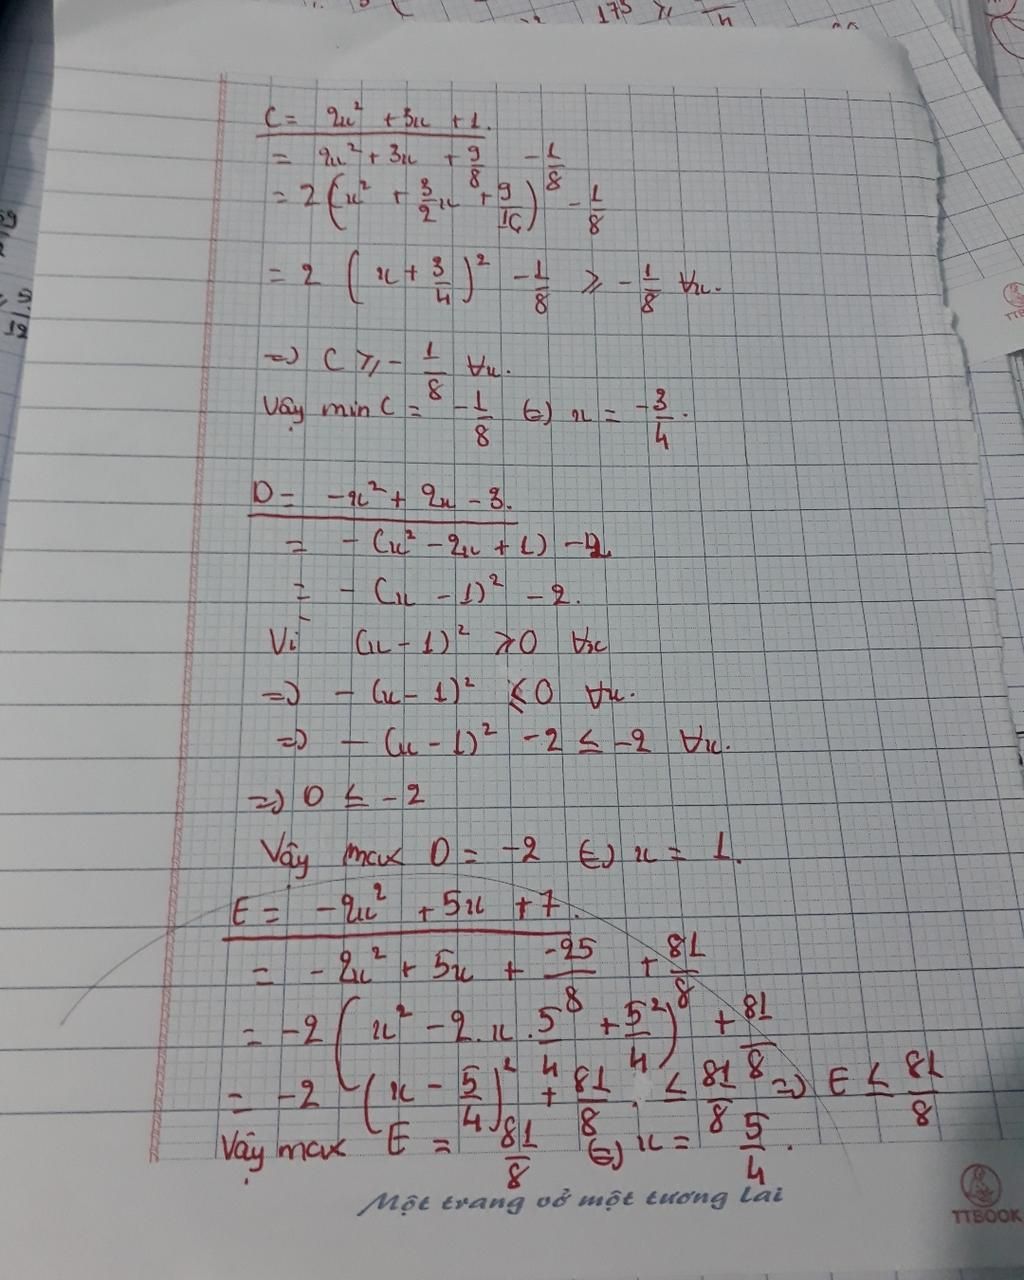 175 ≥
C = 2x² + 3x + 1.
= 2x² + 3x + 9/8 - 1/8
= 2(x² + 3/2x + 9/16) - 1/8
= 2 (x + 3/4)² - 1/8 ≥ - 1/8 ∀x.
=> C ≥ - 1/8 ∀x.
Vậy min C = - 1/8 (=) x = - 3/4.
D = -x² + 2x - 3.
= - (x² - 2x + 1) - 2
= - (x - 1)² - 2.
Vì (x - 1)² ≥ 0 ∀x
=> - (x - 1)² ≤ 0 ∀x.
=> - (x - 1)² - 2 ≤ -2 ∀x.
=> D ≤ -2
Vậy max D = -2 (=) x = 1.
E = -2x² + 5x + 7.
= -2x² + 5x + -25/8 + 81/8
= -2 (x² - 2.x.5/4 + 5²/4) + 81/8
= -2 (x - 5/4)² + 81/8 ≤ 81/8 => E ≤ 81/8
Vậy max E = 81/8 (=) x = 5/4.
Một trang vở một tương lai
TTBOOK